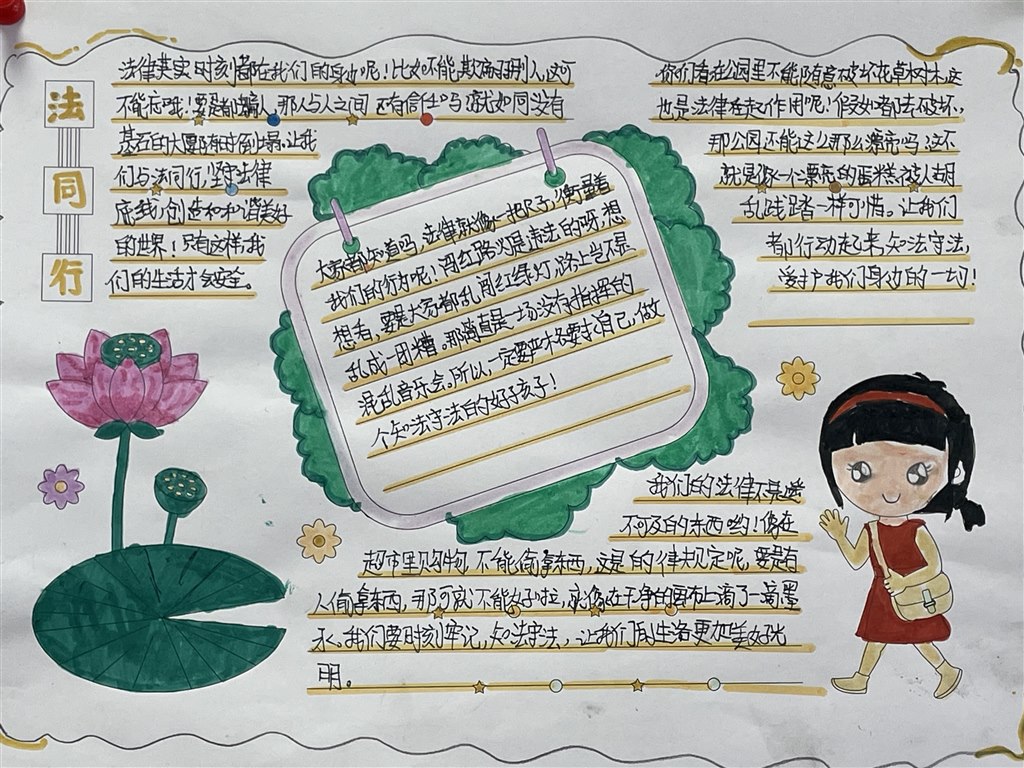 法
同
行
法律其实时刻都在我们的身边呢！比如不能欺骗别人，这可
不能底哦！要是都骗人，那人与人之间还有信任吗？就如同没有
基石的大厦随时倒塌。让我
们与法同行，坚守法律
底线，创造和和谐美好
的世界！只有这样，我
们的生活才会安全。
大家都知道吗，法律就像一把尺子，衡量着
我们的行为呢！闯红路灯是违法的呀，想
想看，要是大家都乱闯红绿灯，路上岂不是
乱成一团糟。那简直是一场没有指挥的
混乱音乐会。所以，一定要严格要求自己，做
个知法守法的好孩子！
你们看在公园里不能随意破坏花草树木，这
也是法律在起作用呢！假如都去破坏，
那公园还能这么那么漂亮吗，这不
就是像一个漂亮的蛋糕被人胡
乱践踏一样可惜。让我们
都行动起来，知法守法，
爱护我们身边的一切！
我们的法律不是遥
不可及的东西哟！像在
超市里购物，不能偷拿东西，这是的律规定呢，要是有
人偷拿东西，那可就不能好啦，就像在干净的画布上滴了一滴墨
水。我们要时刻牢记，知法守法，让我们的生活更加美好光
明。